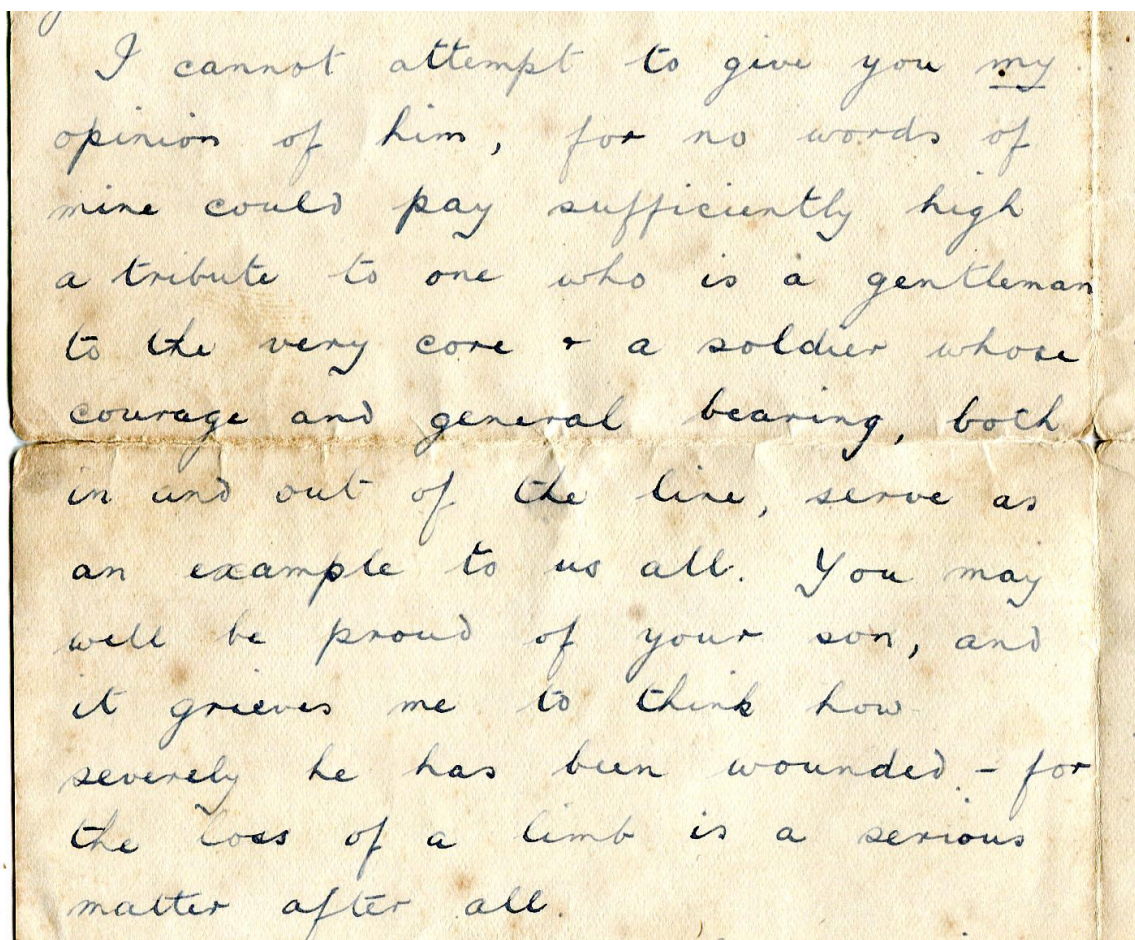 I cannot attempt to give you my
opinion of him, for no words of
mine could pay sufficiently high
a tribute to one who is a gentleman
to the very core + a soldier whose
courage and general bearing, both
in and out of the line, serve as
an example to us all. You may
well be proud of your son, and
it grieves me to think how
severely he has been wounded - for
the loss of a limb is a serious
matter after all.